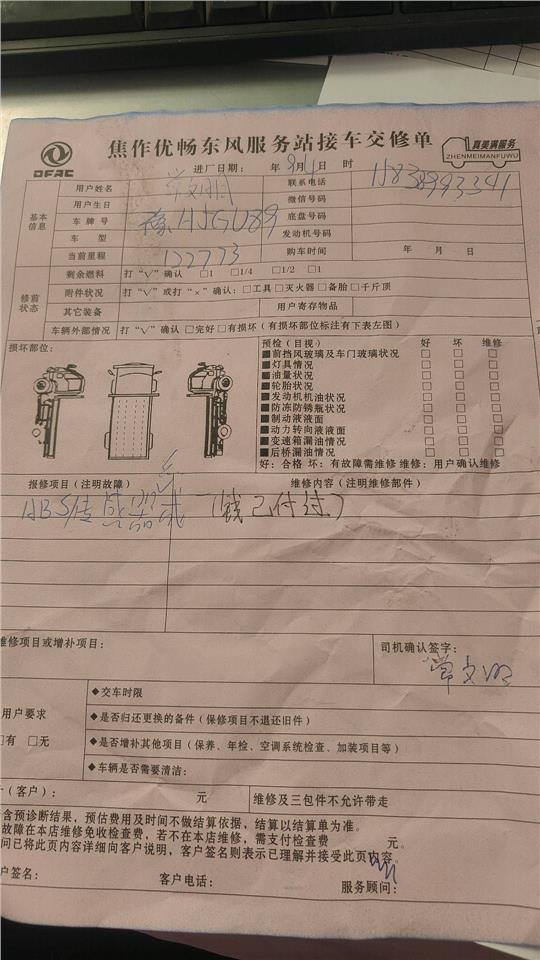 DFAC
焦作优畅东风服务站接车交修单
真美满服务
ZHENMEIMANFUWU
进厂日期： 年 9月4日 时
基本信息
用户姓名 联系电话
用户生日 微信号码
车牌号 豫HJGU89 底盘号码
车型 发动机号码
当前里程 122773 购车时间 年 月 日
修前状态
剩余燃料 打“√”确认 □1 □1/4 □1/2 □1
附件状况 打“√”或打“×”确认：□工具 □灭火器 □备胎 □千斤顶
其它装备 用户寄存物品
车辆外部情况 打“√”确认 □完好 □有损坏（有损坏部位标注有下表左图）
损坏部位： 预检（目视） 好 坏 维修
■前挡风玻璃及车门玻璃状况 □ □ □
■灯具情况 □ □ □
■油量状况 □ □ □
■轮胎状况 □ □ □
■发动机机油状况 □ □ □
■防冻防锈瓶状况 □ □ □
■制动液液面 □ □ □
■动力转向液液面 □ □ □
■变速箱漏油情况 □ □ □
■后桥漏油情况 □ □ □
好：合格 坏：有故障需维修 维修：用户确认维修
报修项目（注明故障） 维修内容（注明维修部件）
ABS传感器 （钱已付过）
维修项目或增补项目： 司机确认签字：
用户要求
□有 □无
◆交车时限
◆是否归还更换的备件（保修项目不退还旧件）
◆是否增补其他项目（保养、年检、空调系统检查、加装项目等）
◆车辆是否需要清洁：
（客户）： 元 维修及三包件不允许带走
含预诊断结果，预估费用及时间不做结算依据，结算以结算单为准。
故障在本店维修免收检查费，若不在本店维修，需支付检查费 元。
问已将此页内容详细向客户说明，客户签名则表示已理解并接受此页内容。
户签名： 客户电话： 服务顾问：